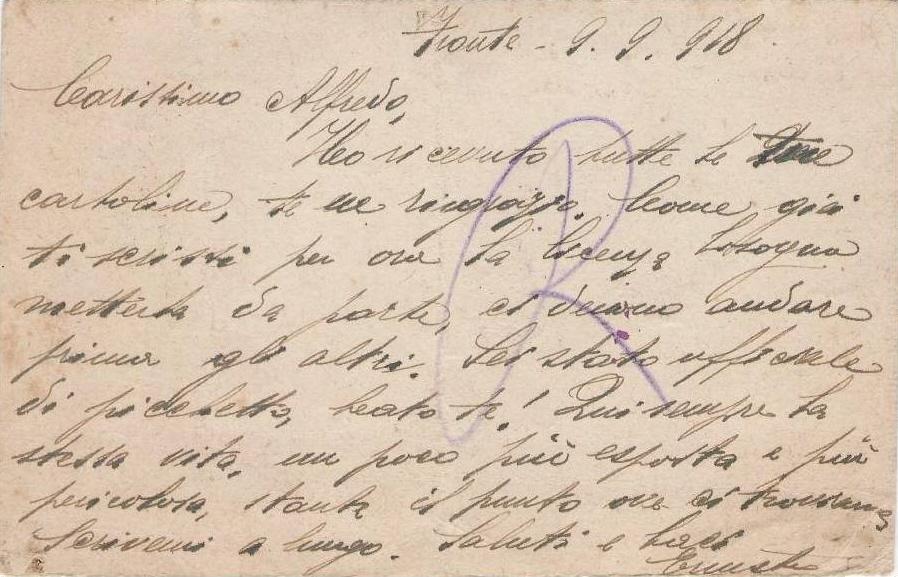 Fronte - 9. 9. 918
Carissimo Alfredo,
Ho ricevuto tutte le due
cartoline, te ne ringrazio. Come già
ti scrissi per ora la licenza bisogna
metterla da parte, ci devono andare
prima gli altri. Sei stato ufficiale
di picchetto, beato te! Qui sempre la
stessa vita, un poco più esposta e più
pericolosa, stante il punto ove ci troviamo
Scrivemi a lungo. Saluti e baci
Ernesto
R